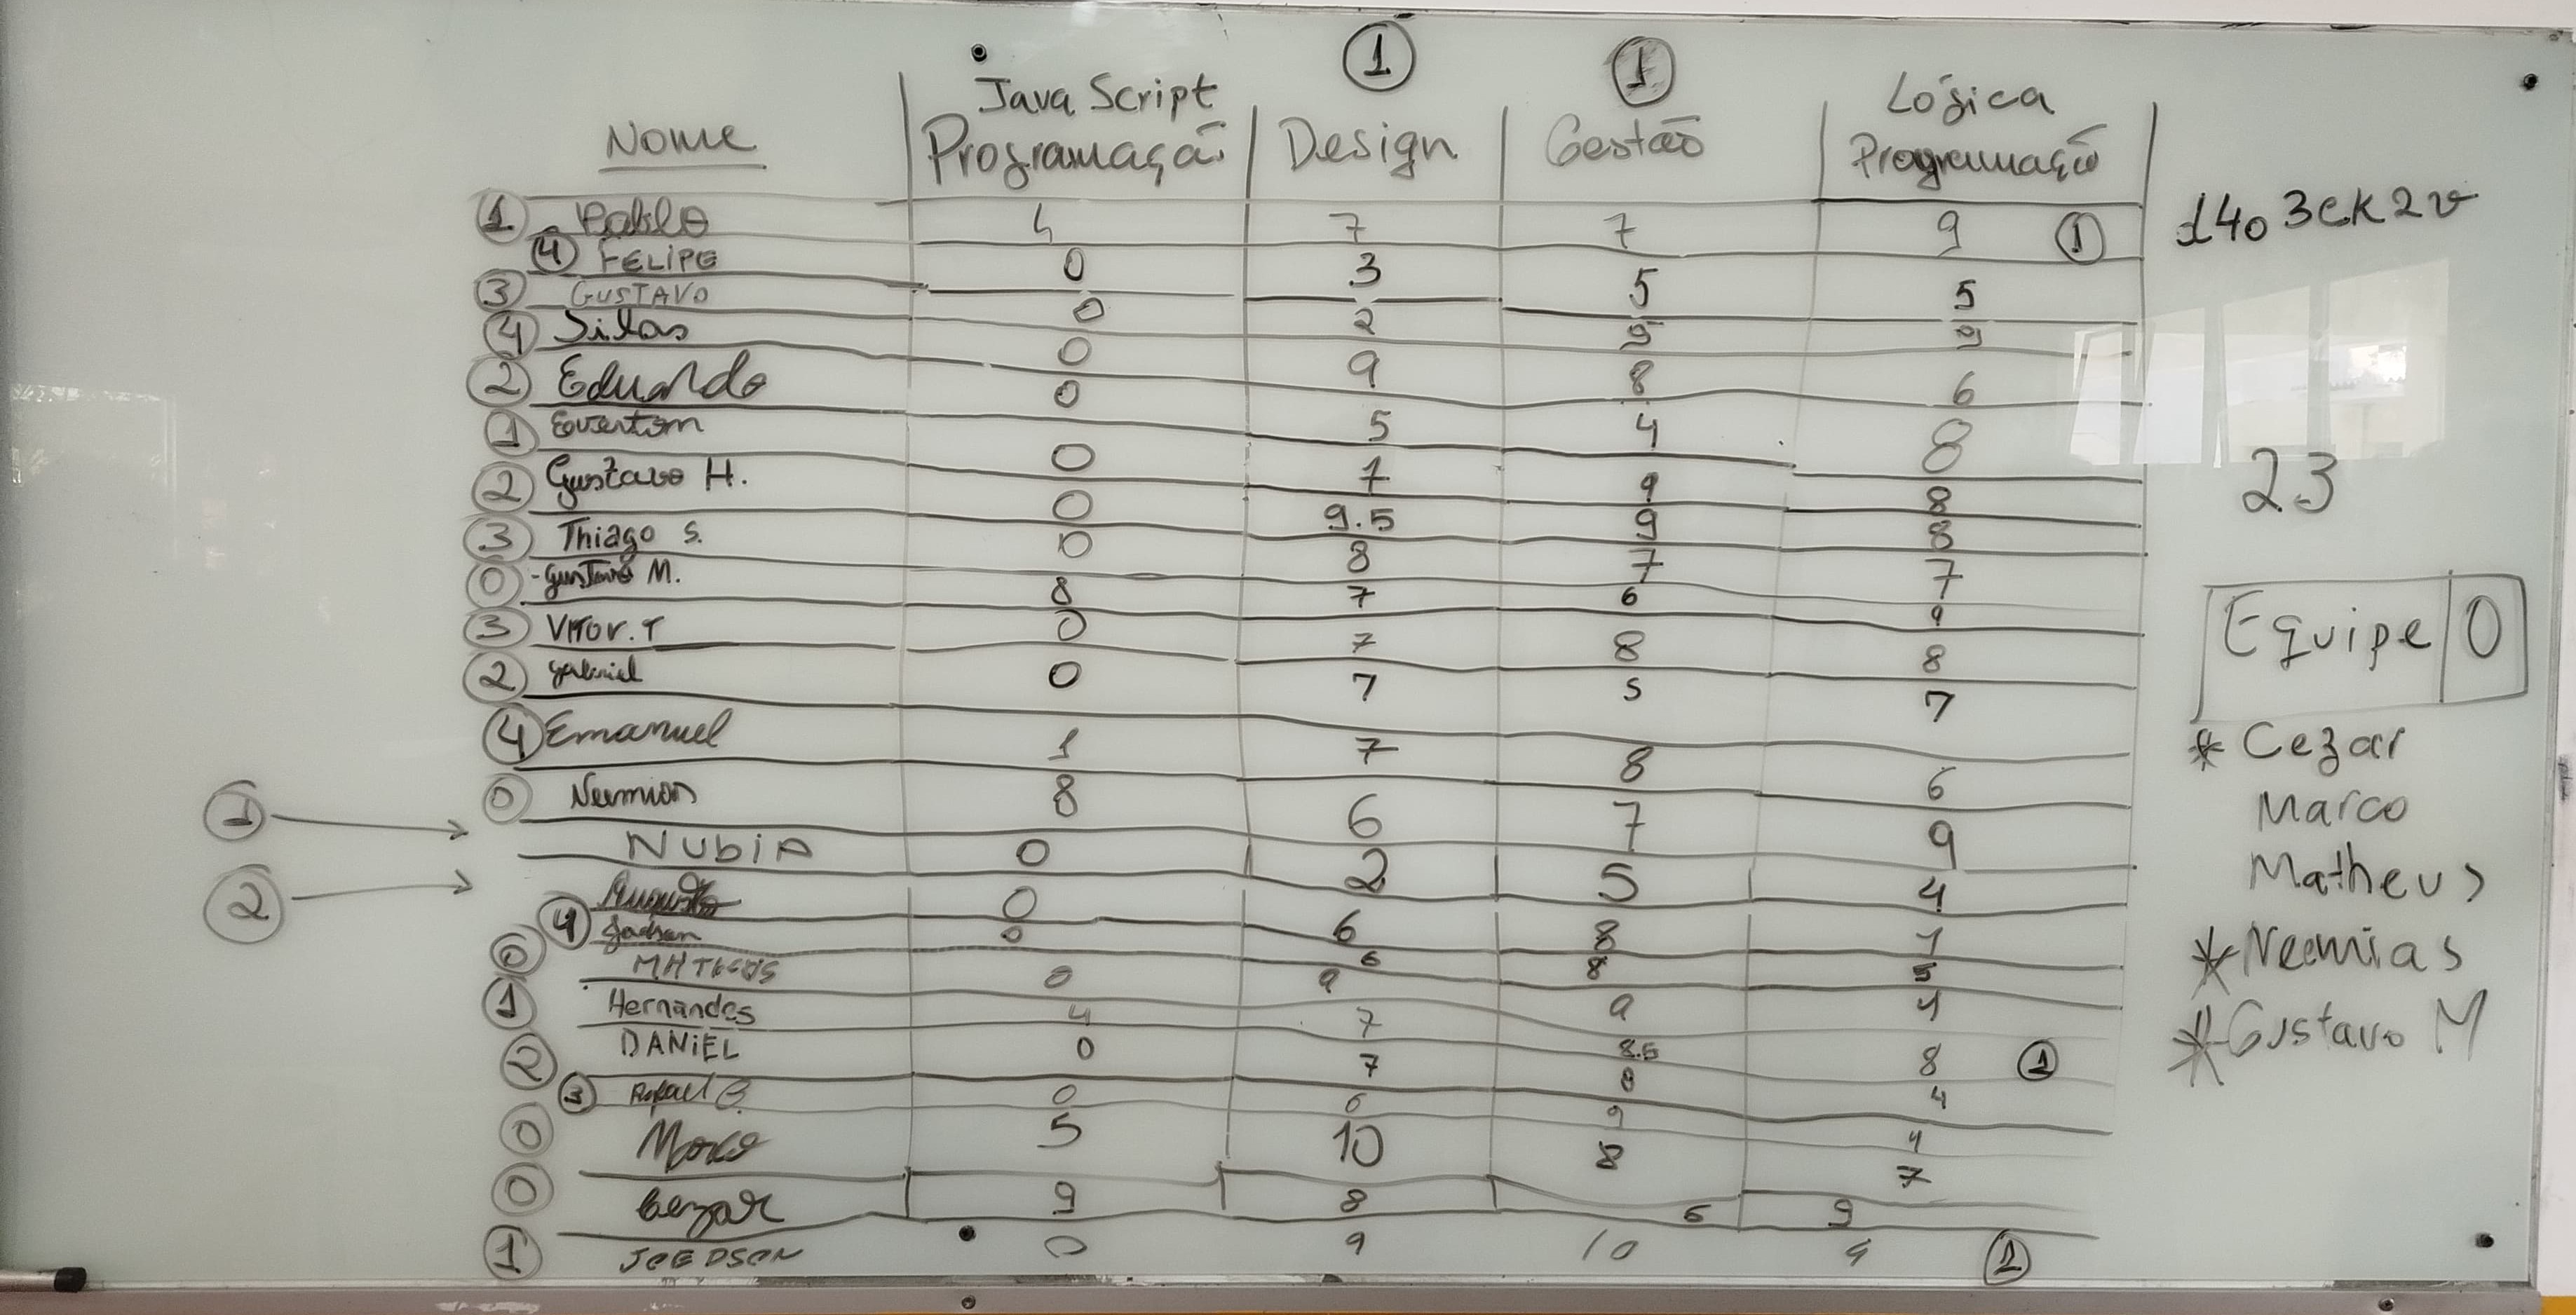 1 1
Java Script Lógica
Nome Programação Design Gestão Programação
1 Pablo 4 7 7 9 1
4 FELIPE 0 3 5 5
3 GUSTAVO 0 2
4 Silas 0 9 8 6
2 Eduardo 0 5 4 8
1 Everton 0 7 9 8
2 Gustavo H. 0 9.5 9 8
3 Thiago S. 0 8 7 7
0 - Gustavo M. 8 7 6 9
3 VITOR.T 0 7 8 8
2 gabriel 0 7 5 7
4 Emanuel 1 7 8 6
0 Neemias 8 6 7 9
1 NUBIA 0 2 5 4
2 Augusto 0 6 8
4 Jadson 0 6 8 5
0 MATHEUS 0 9 9 4
1 Hernandes 4 7 8.5 8 1
2 DANIEL 0 7 8 4
3 Rafael G. 0 6 9 4
0 Marco 5 10 8 7
0 Cezar 9 8 6 9
1 JOEDSON 0 9 10 4 1
1403CK2v
23
Equipe 0
* Cezar
Marco
Matheus
* Neemias
* Gustavo M